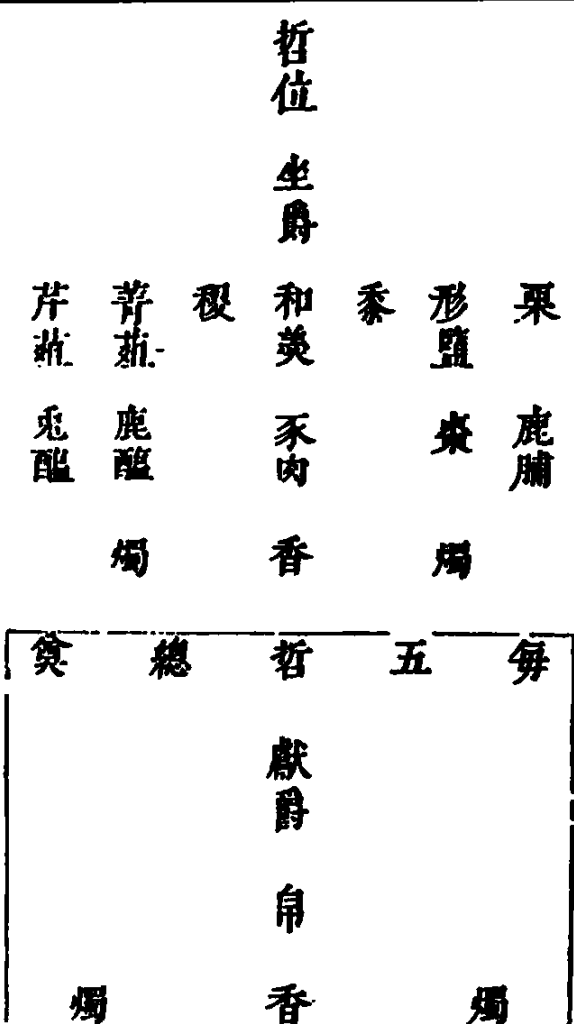 哲位
坐爵
栗 形鹽 黍 和羹 稷 菁菹 芹菹
鹿脯 棗 豕肉 鹿醢 兎醢
燭 香 燭
每 五 哲 總 奠
獻爵
帛
燭 香 燭